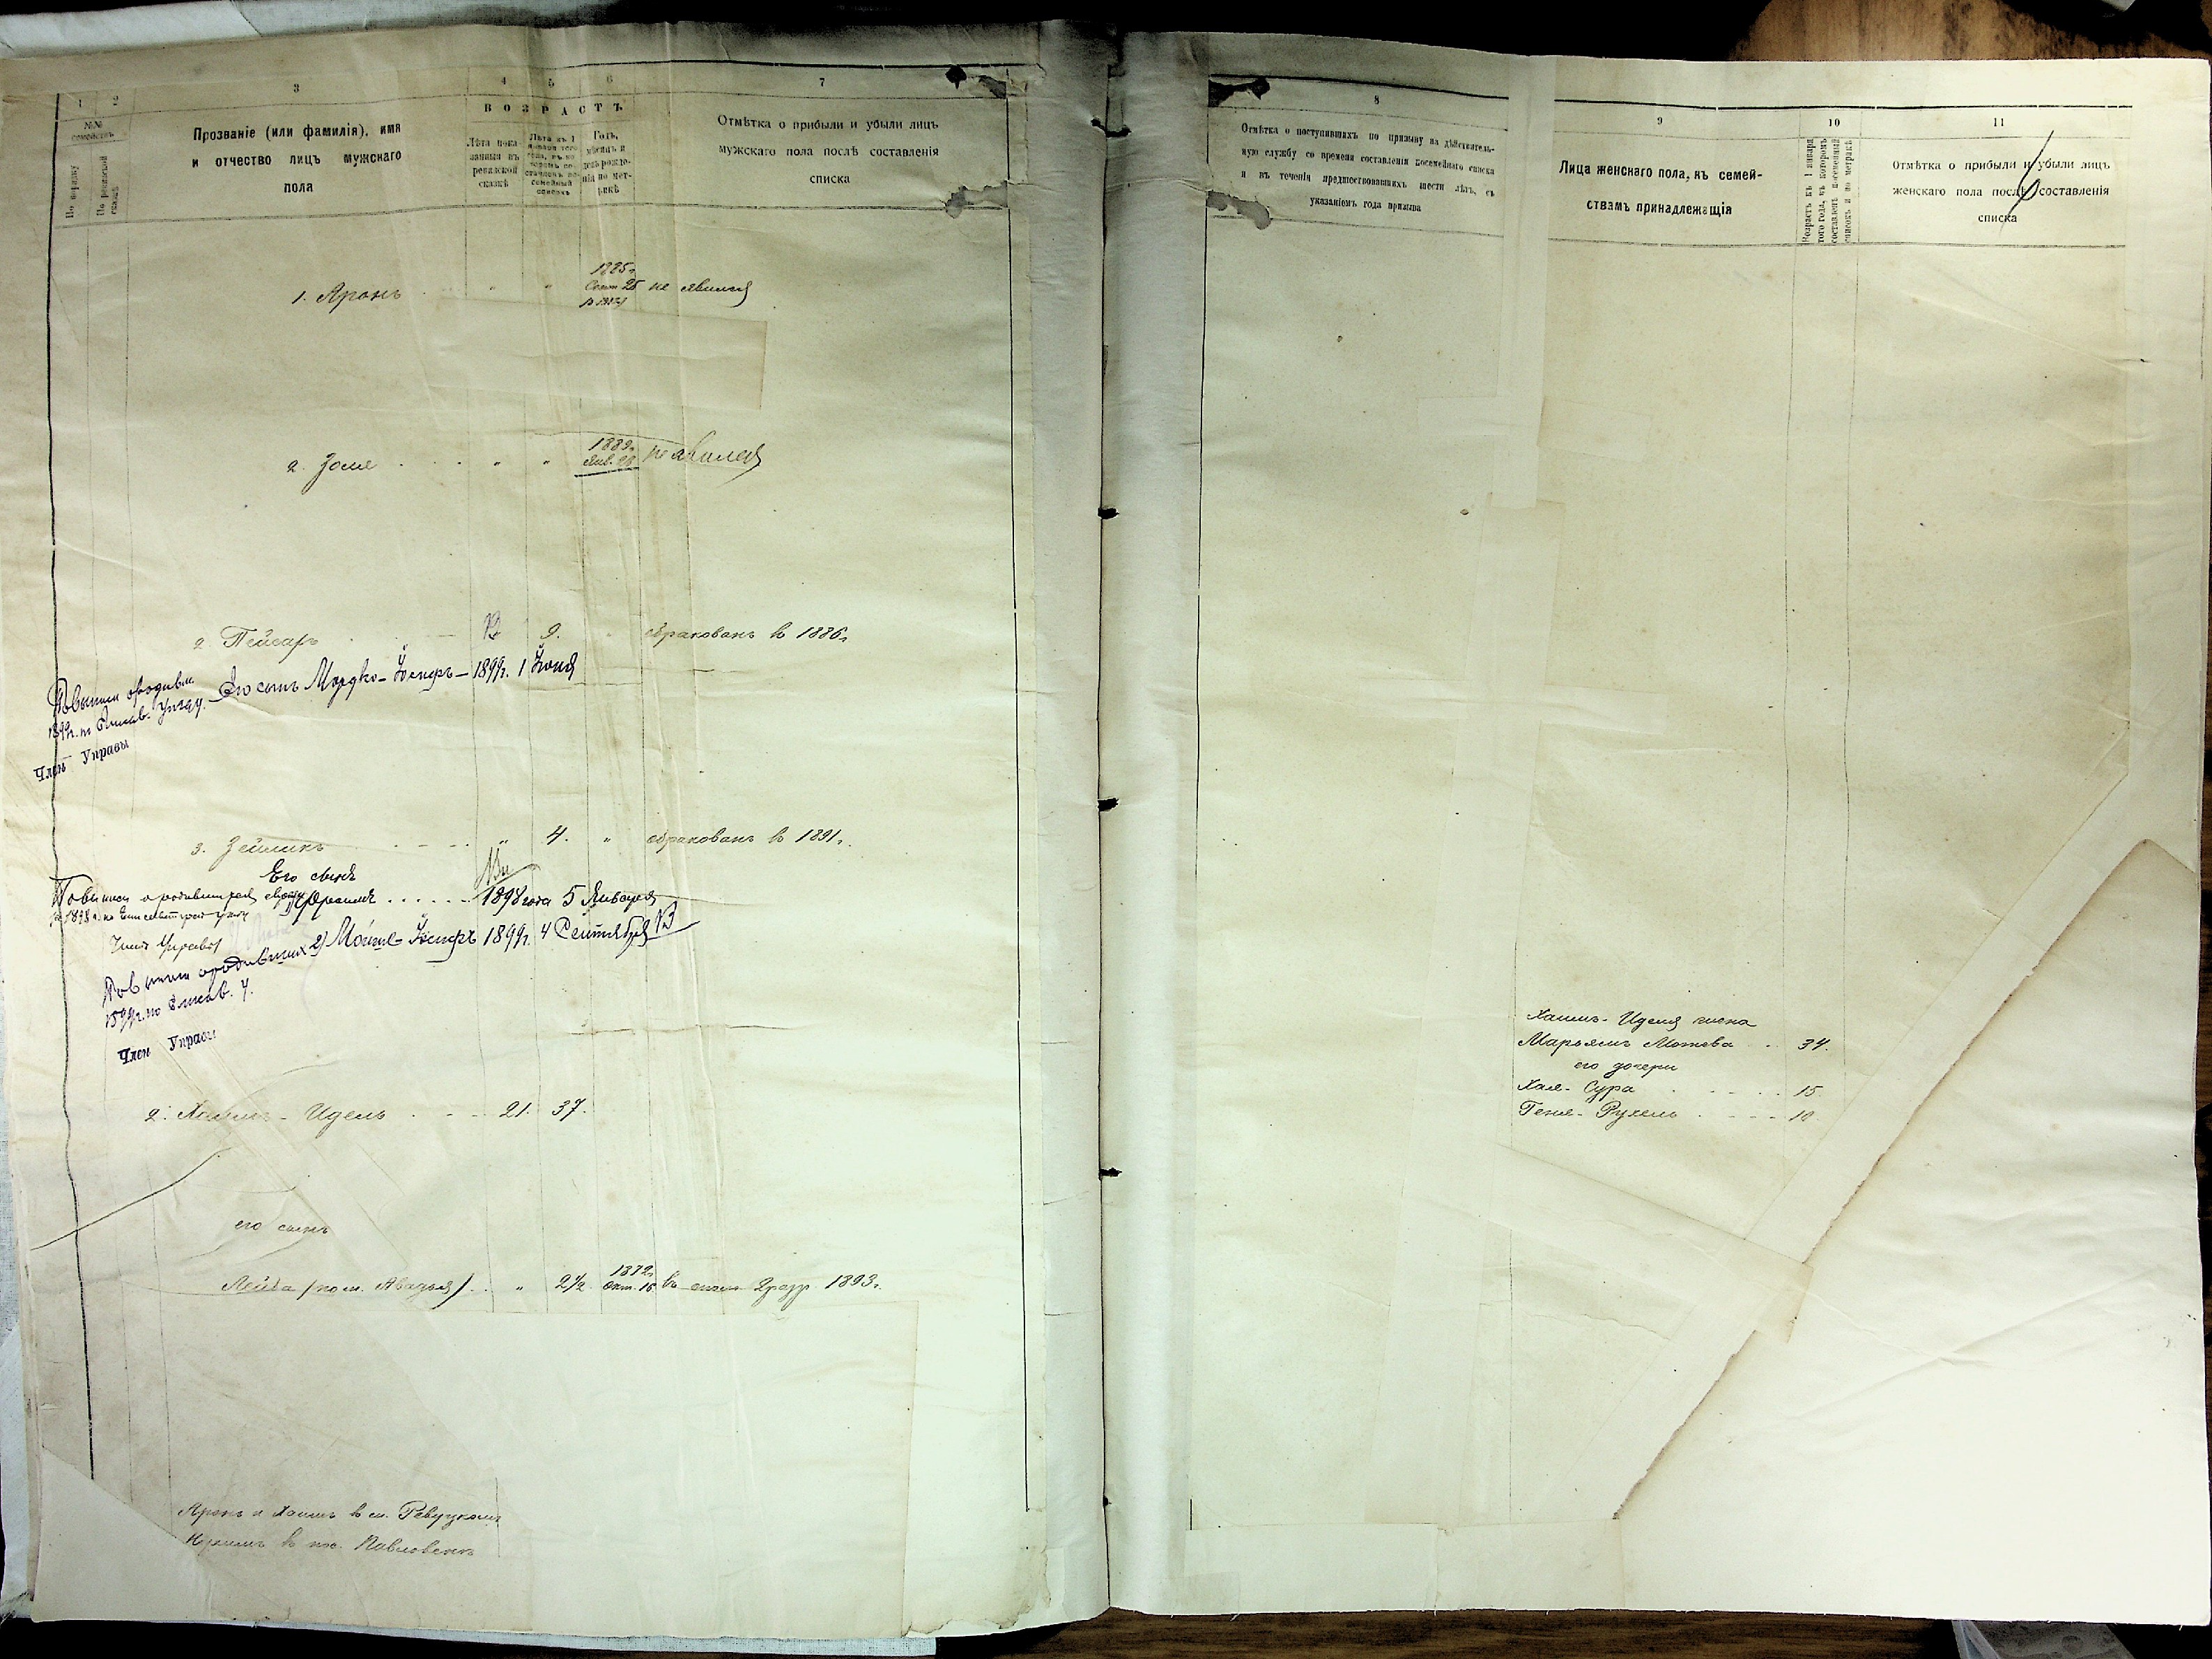 1 2 3 4 5 6 7
№№ семействъ
По порядку
По ревизской сказкѣ
Прозваніе (или фамилія), имя
и отчество лицъ мужскаго
пола
ВОЗРАСТЪ
Лѣта показанныя въ ревизской сказкѣ
Лѣта къ 1 января того года, въ которомъ составленъ посемейный списокъ
Годъ, мѣсяцъ и день рожденія по метрикѣ
Отмѣтка о прибыли и убыли лицъ
мужскаго пола послѣ составленія
списка
1. Аронъ . . " " 1885г. Сент 25 не явился
2. Зоме . . . . " " 1889г. Янв. 20 не явился
2 Пейсаръ В 9. обракованъ въ 1886г.
Его сынъ Мордко-Іосифъ - 1899г. 1 Іюня
1899г. по Елисав. уѣзду.
Членъ Управы
3. Зейликъ . . . . " 4. " обракованъ въ 1891г.
Его сынъ
Фроимъ . . . . . . 1898 года 5 Января
1898 г. по
Членъ Управы
2) Мойше-Іосифъ 1899г. 4 Сентября
1899г. по Елисав. у.
Членъ Управы
2. Хаимъ-Идель . . . 21. 37.
его сынъ
Лейба (по м. Авадья) . . " 2½. 1872г. Окт. 15 въ опол. 2 разр. 1893г.
Аронъ и Хаимъ въ м. Ревуцкомъ
въ пос. Павловскъ
8 9 10 11
Отмѣтка о поступившихъ по призыву на дѣйствитель-
ную службу со времени составленія посемейнаго списка
и въ теченіи предшествовавшихъ шести лѣтъ, съ
указаніемъ года призыва
Лица женскаго пола, къ семей-
ствамъ принадлежащія
Возрастъ къ 1 января того года, въ которомъ составленъ посемейный списокъ и по метрикѣ
Отмѣтка о прибыли и убыли лицъ
женскаго пола послѣ составленія
списка
Хаимъ-Иделя жена
Марьямъ Мотева . . 34.
его дочери
Хая-Сура . . . . . 15.
Геня-Рухель . . . . 10.